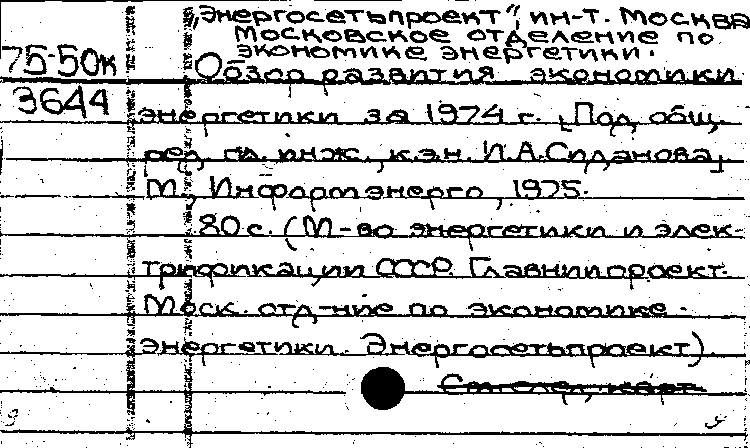 „Энергосетьпроект“, ин-т. Москва
Московское отделение по
экономике энергетики.
75-50к Обзор развития экономики
3644 энергетики за 1974 г. [Под общ.
ред. гл. инж., к.э.н. И.А.Сиданова]
М., Информэнерго, 1975.
80 с. (М-во энергетики и элек-
трификации СССР. Главниипроект.
Моск. отд-ние по экономике
энергетики. Энергосетьпроект).